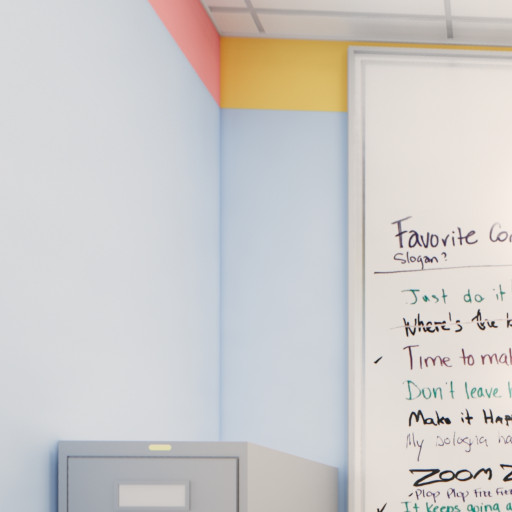 Favorite Co
Slogan?
Just do it
Where's the b
Time to mak
Don't leave h
Make it Happ
My bologna ha
ZOOM Z
-Plop Plop fizz fizz
It keeps going a